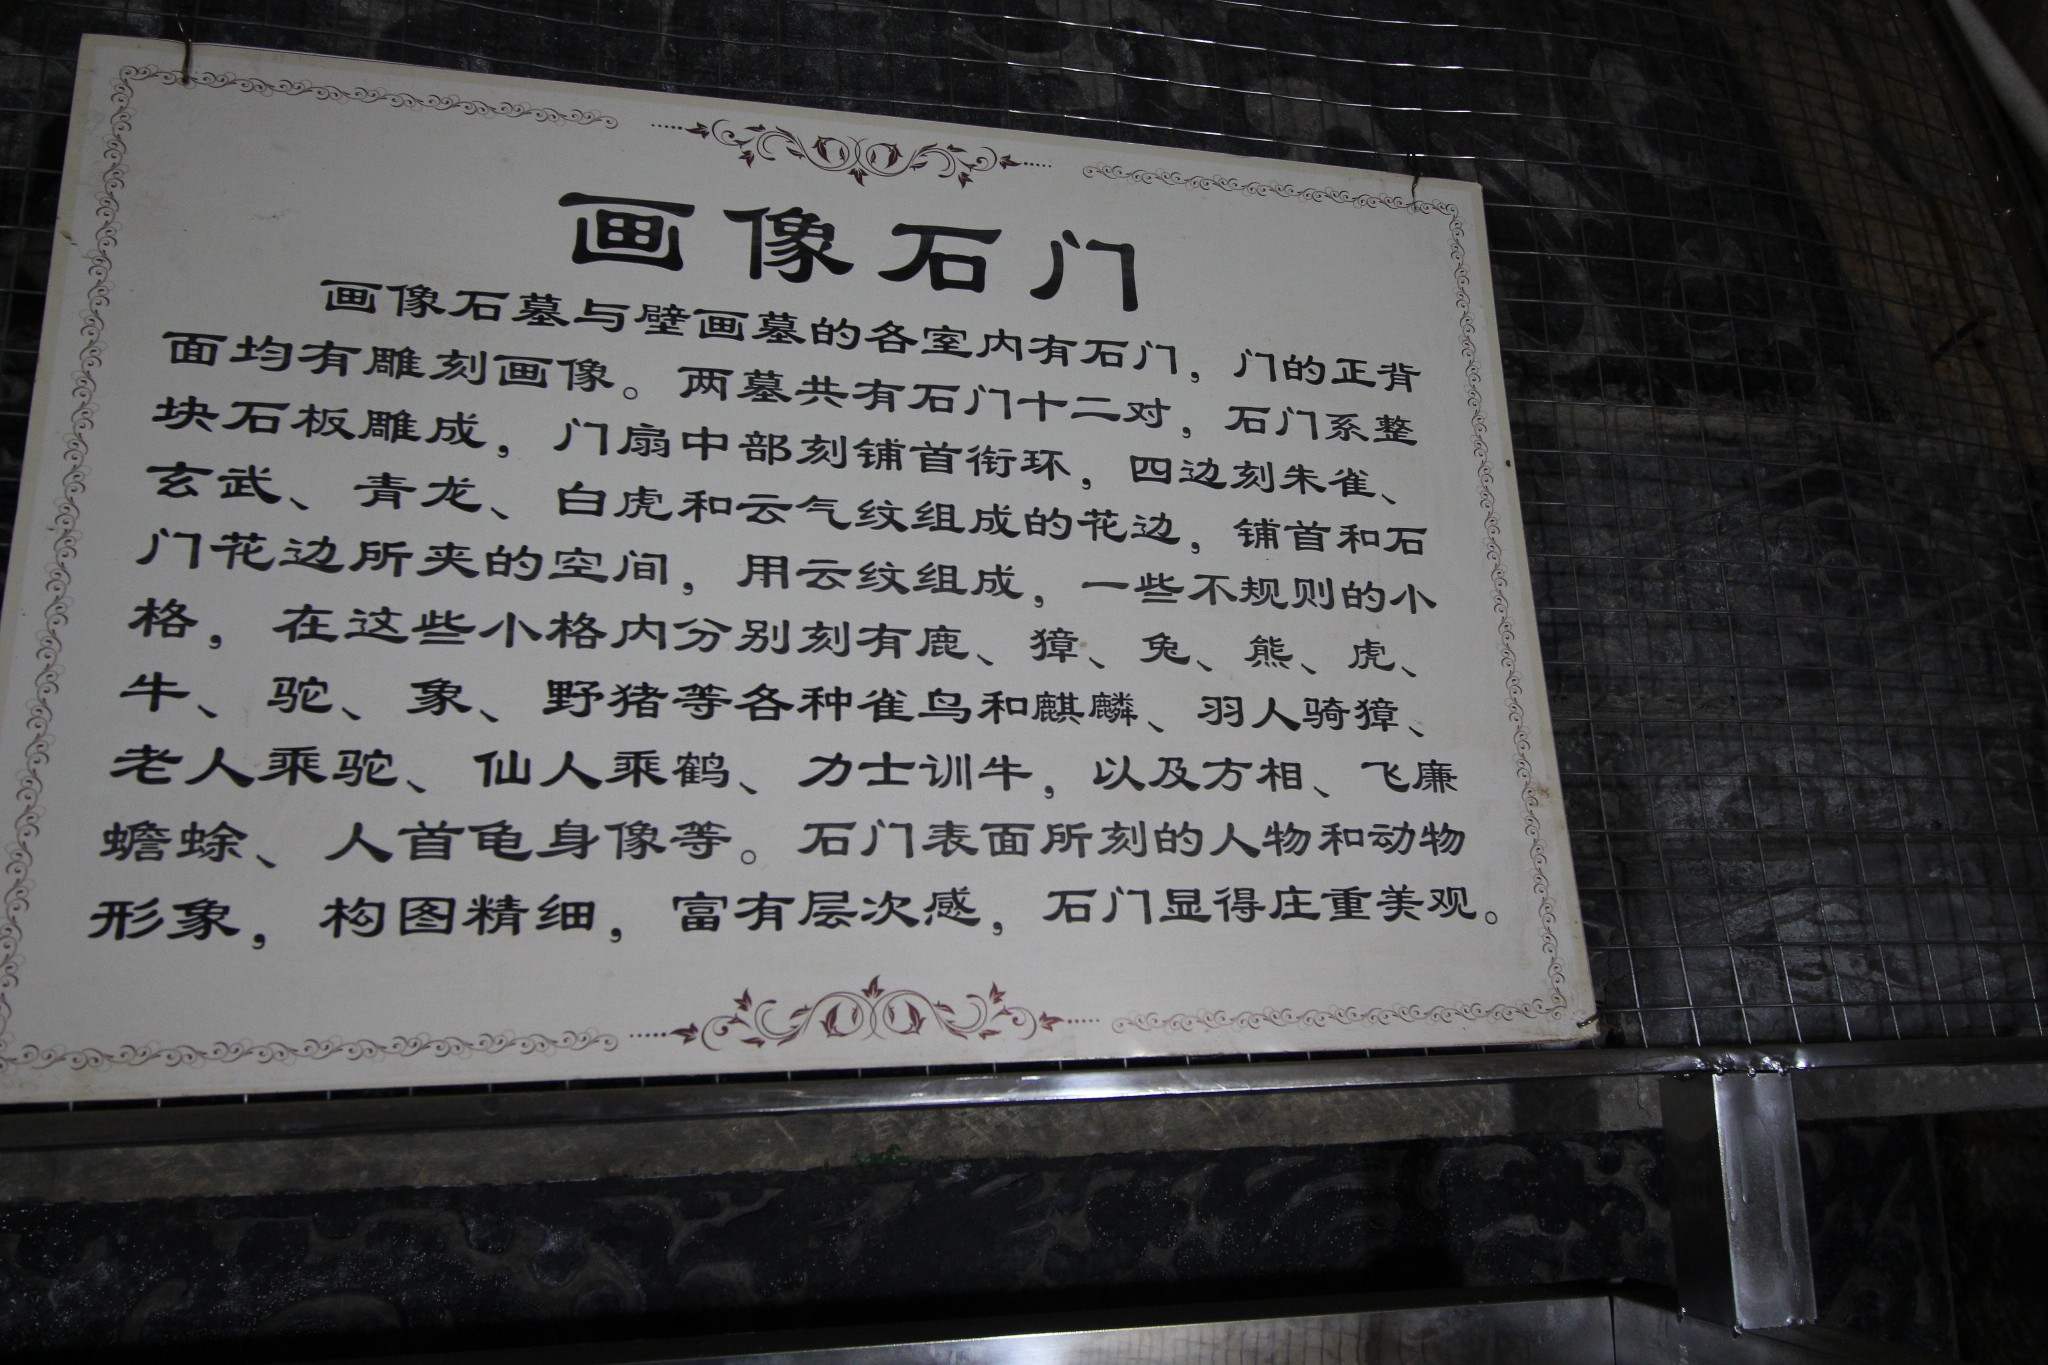 画像石门
画像石墓与壁画墓的各室内有石门，门的正背
面均有雕刻画像。两墓共有石门十二对，石门系整
块石板雕成，门扇中部刻铺首衔环，四边刻朱雀、
玄武、青龙、白虎和云气纹组成的花边，铺首和石
门花边所夹的空间，用云纹组成，一些不规则的小
格，在这些小格内分别刻有鹿、獐、兔、熊、虎、
牛、驼、象、野猪等各种雀鸟和麒麟、羽人骑獐、
老人乘驼、仙人乘鹤、力士训牛，以及方相、飞廉
蟾蜍、人首龟身像等。石门表面所刻的人物和动物
形象，构图精细，富有层次感，石门显得庄重美观。